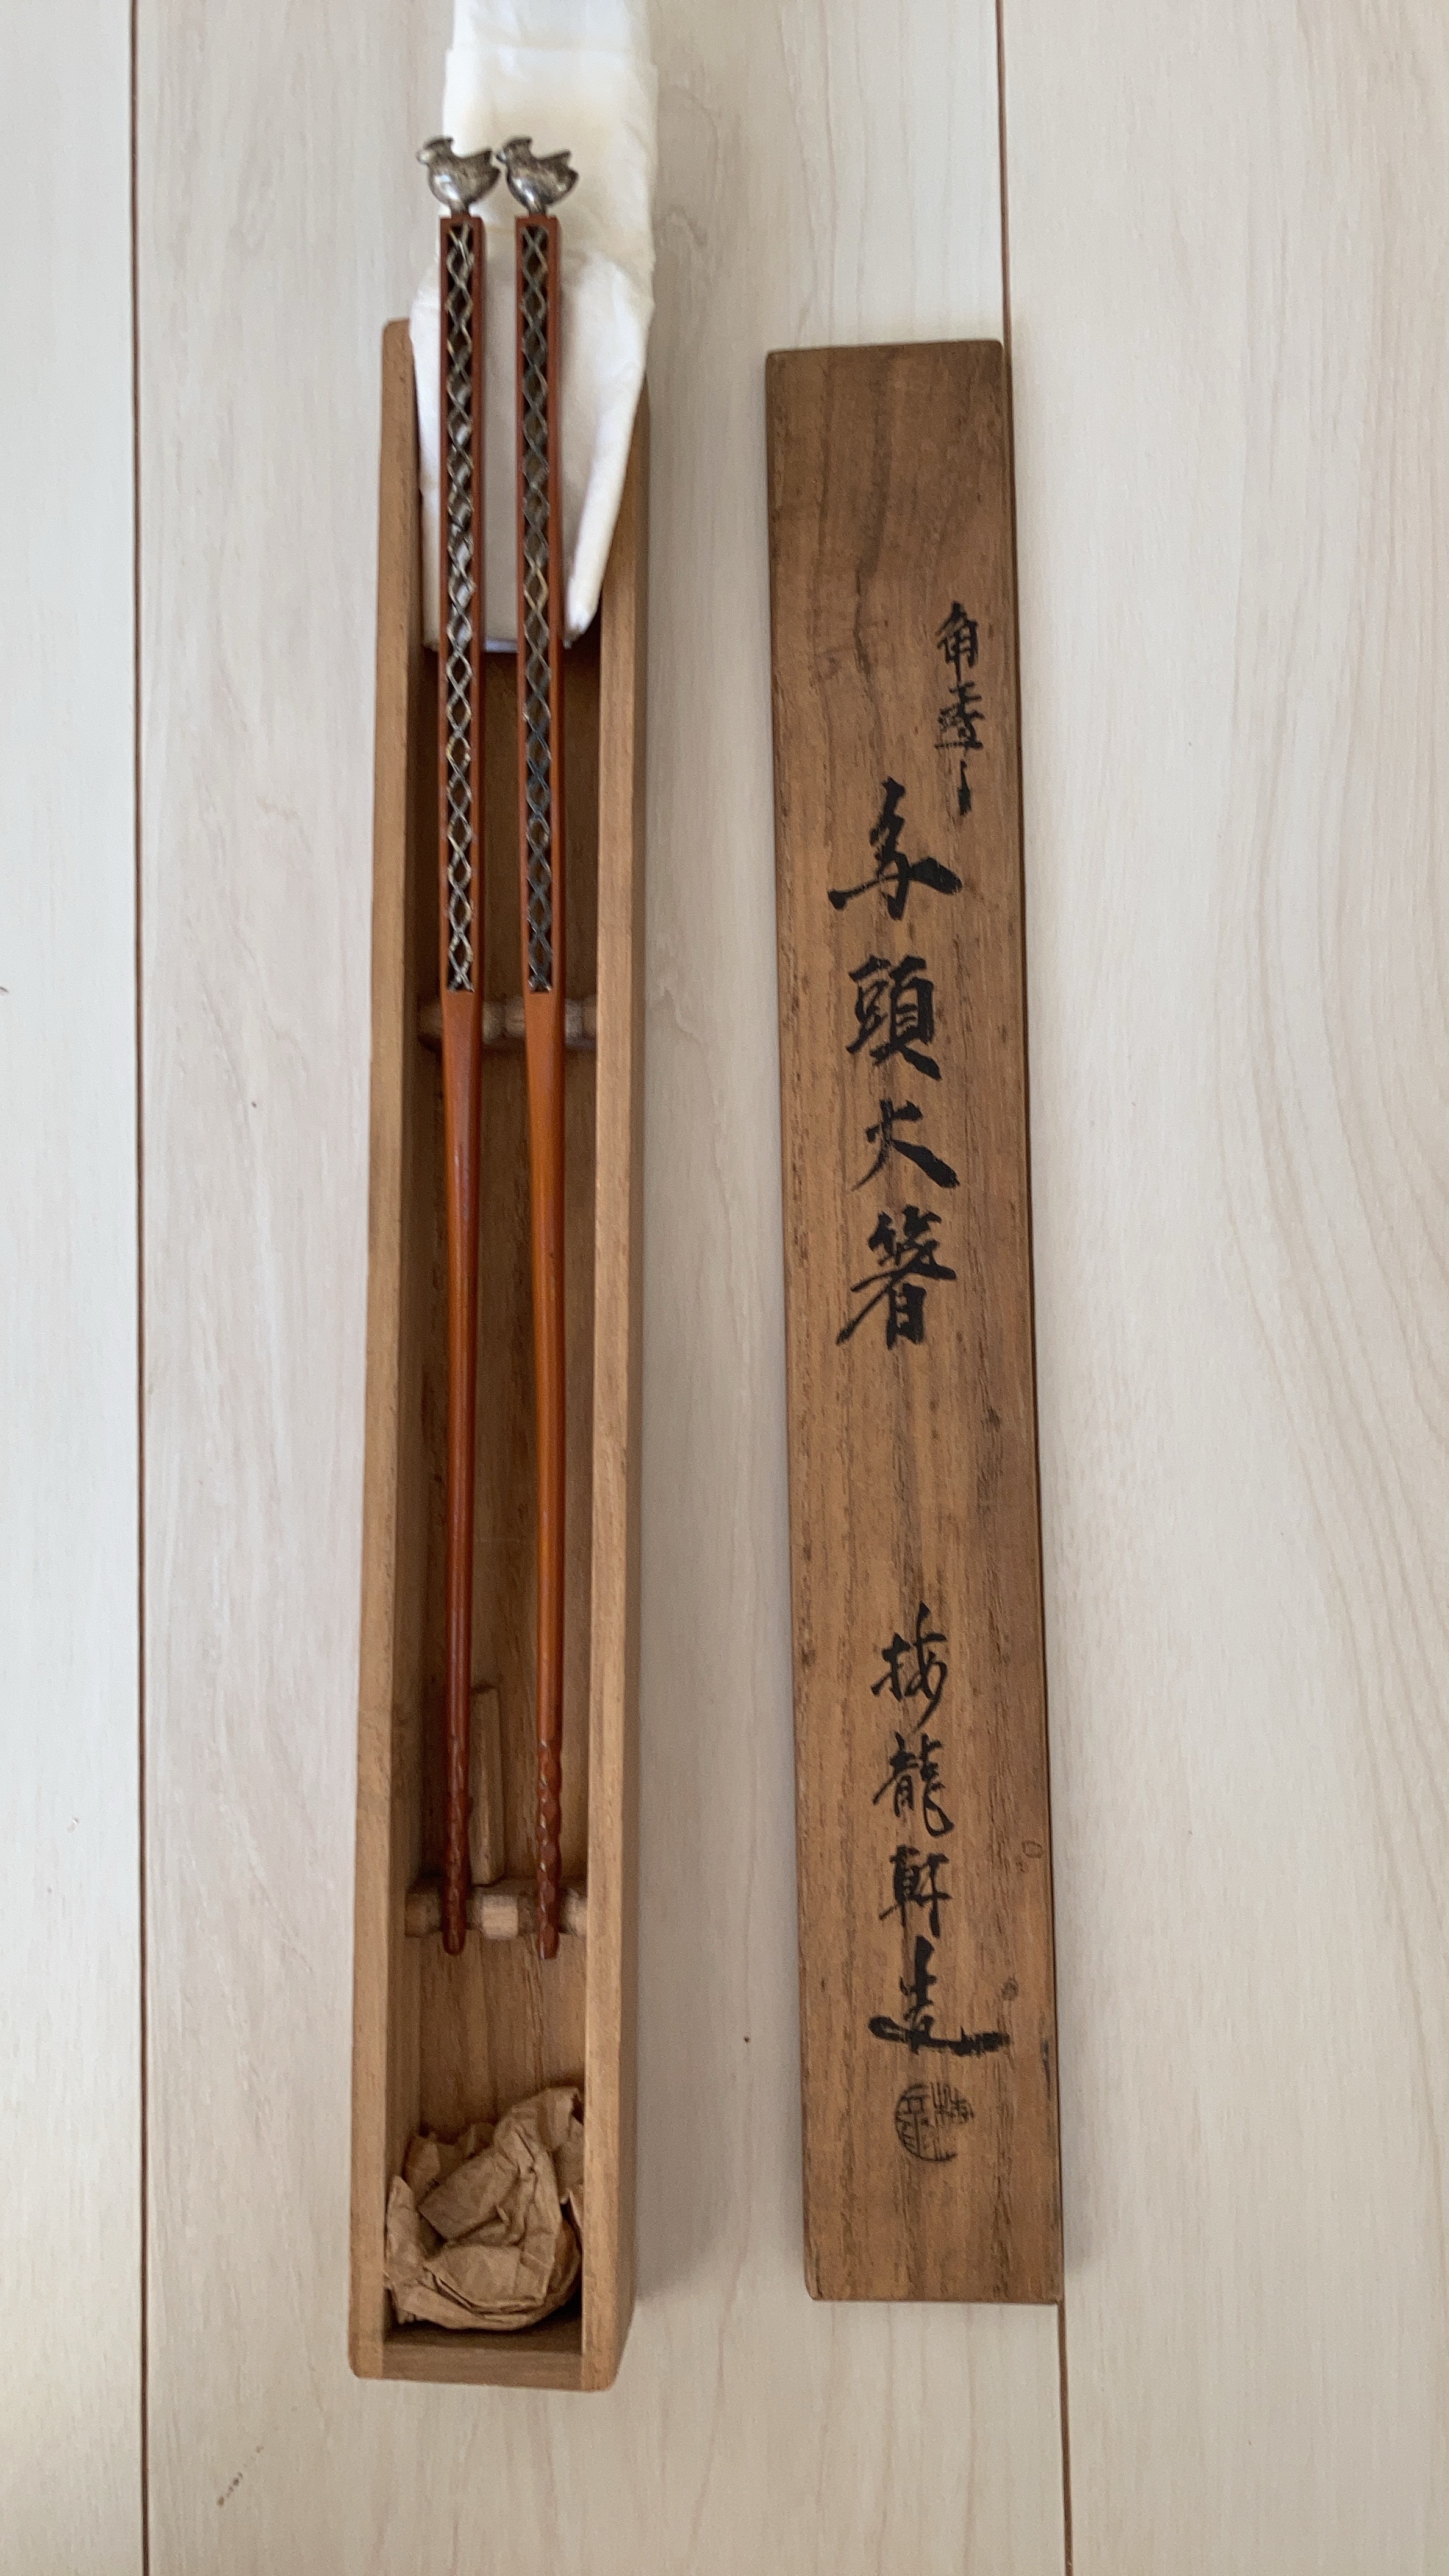 角透し
鳥頭火箸
梅龍軒造